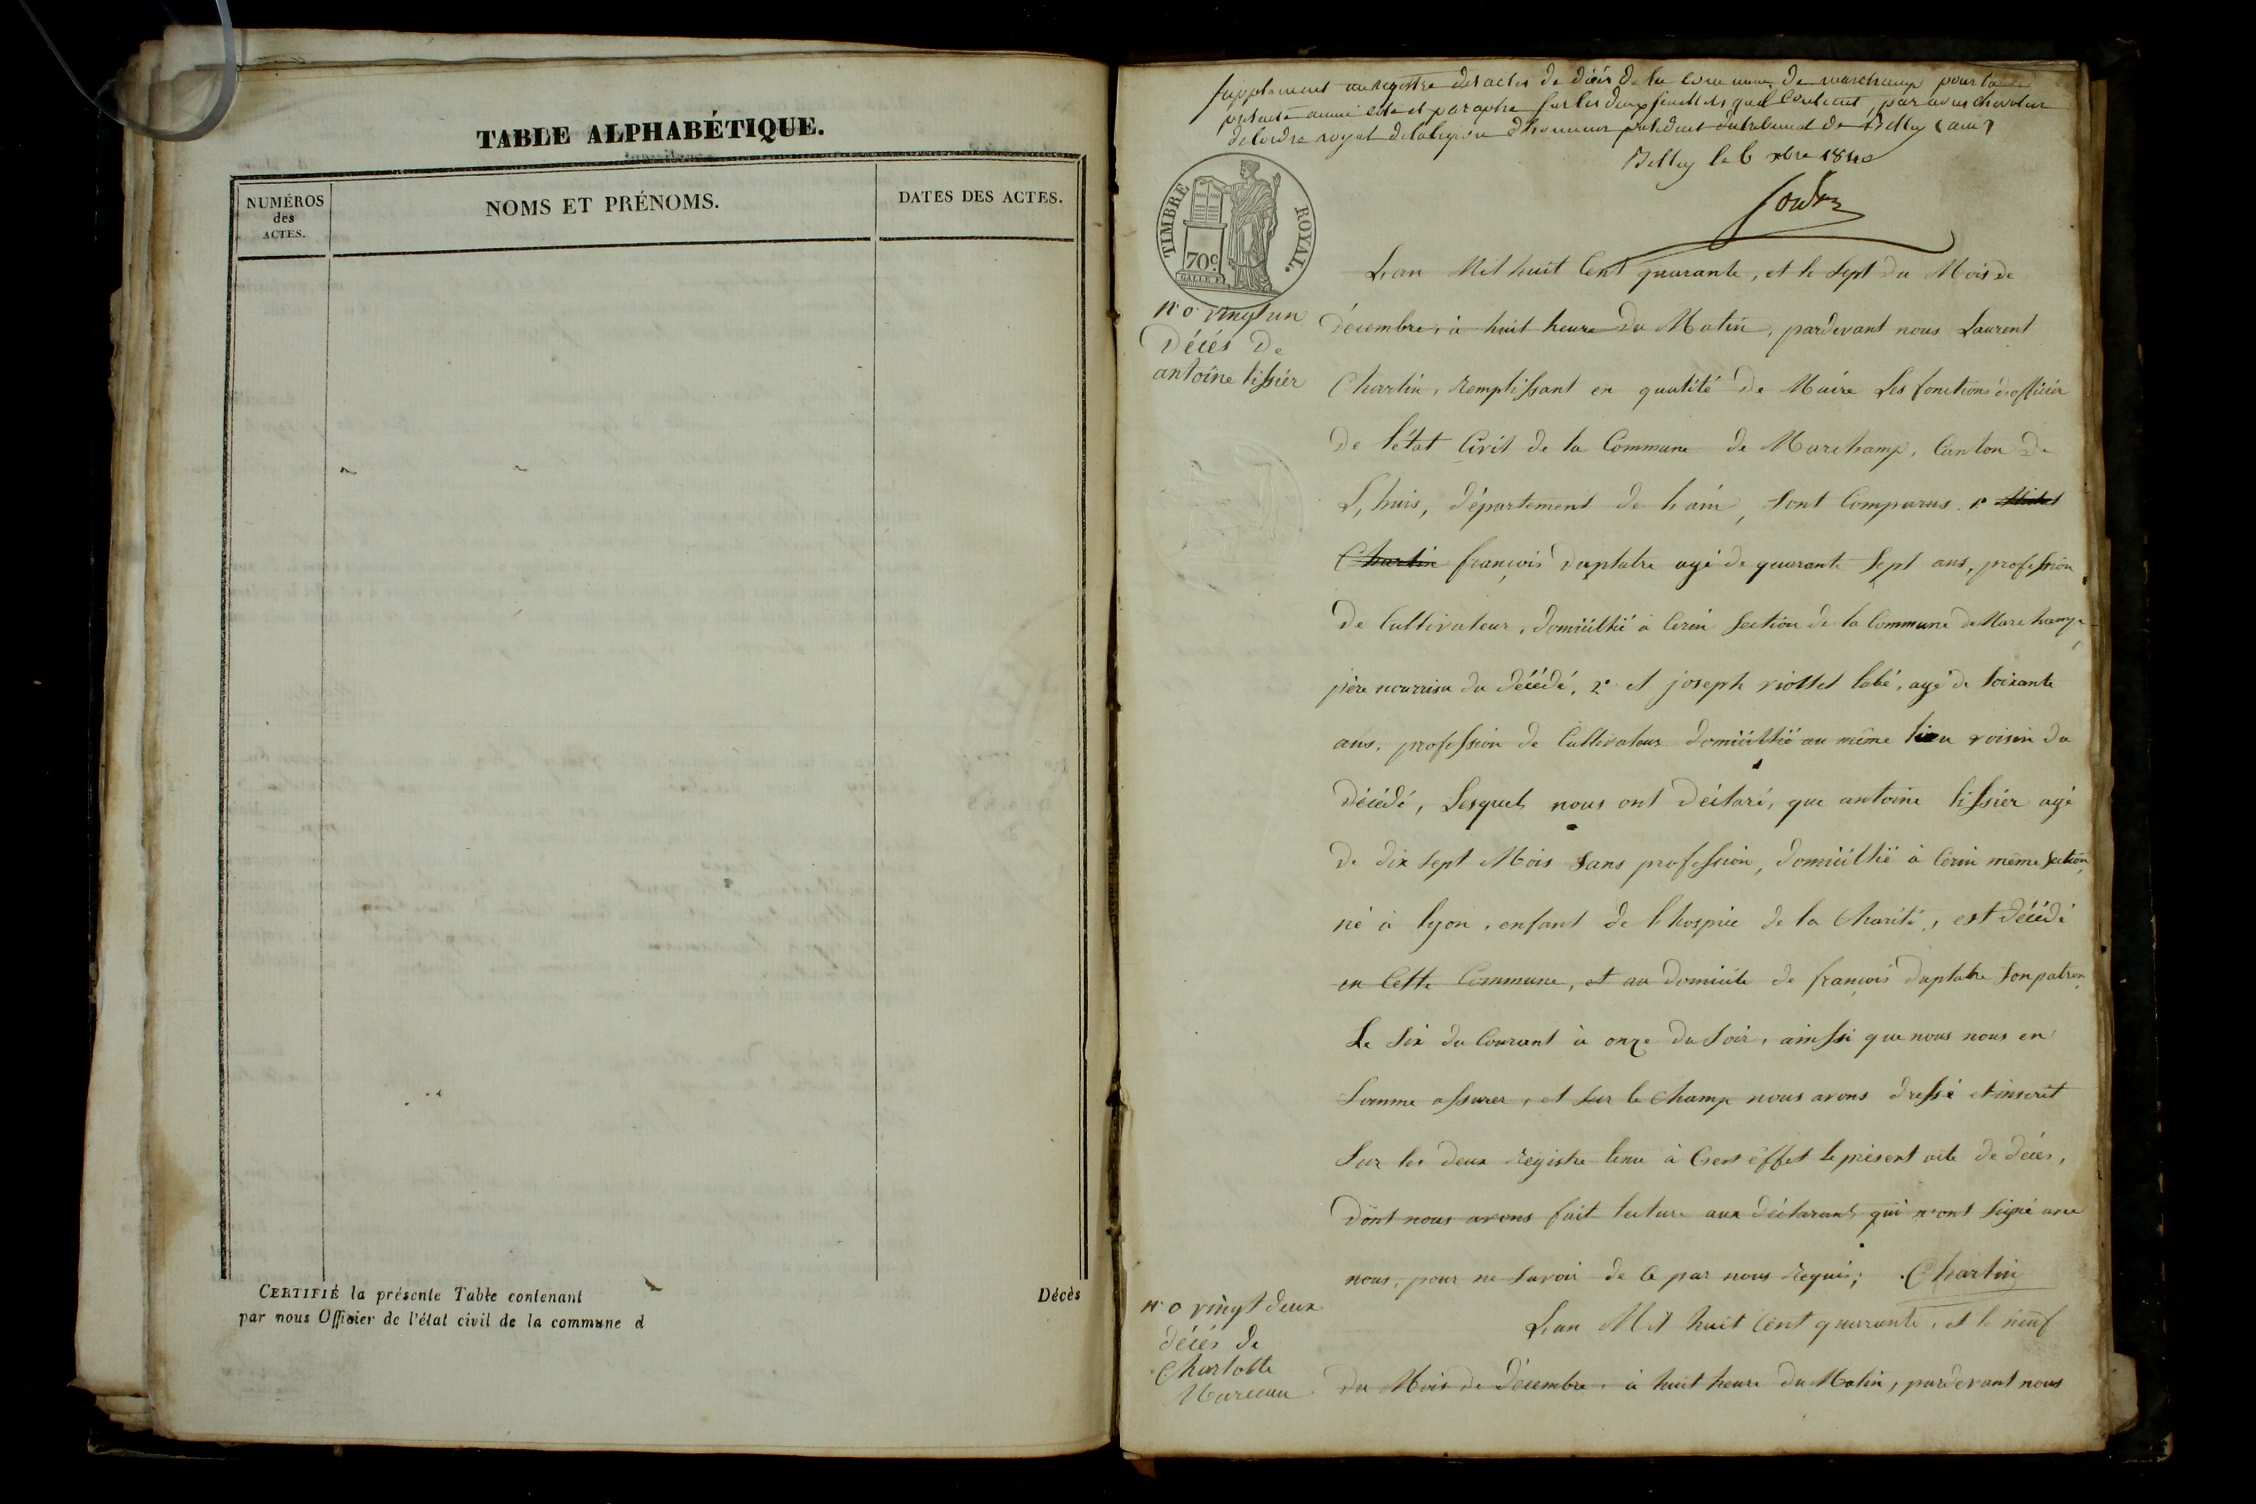 TABLE ALPHABÉTIQUE.
NUMÉROS
des
ACTES.
NOMS ET PRÉNOMS.
DATES DES ACTES.
CERTIFIÉ la présente Table contenant Décès
par nous Officier de l'état civil de la commune d
supplement au registre des actes de décès de la commune de marchamp pour la
présente année coté et paraphé sur les deux feuillets qu'il contient, par nous chevalier
de l'ordre royal de la légion d'honneur président du tribunal de Belley (ain)
Belley le 6 xbre 1840
TIMBRE ROYAL.
70c.
N° vingt un
Décés De
antoine tissiér
L'an Mil huit Cent quarante, et le Sept du Mois de
décembre, à huit heure Du Matin, pardevant nous Laurent
Charlin, Remplissant en qualité De Maire Les fonctions d'officiér
De l'état Civil de la Commune de Marchamp, Canton De
L,huis, département de l'ain, Sont Comparus 1°
Charlin françois Duplatre agé de quarante Sept ans, profession
De Cultivateur, domicillié à Cerin Section de la Commune de Marchamp,
pére nourrisu du décédé, 2° et joseph riottet labé, agé de Soixante
ans, profession de Cultivateur domicillié au même lieu voisin du
décédé, Lesquels nous ont déclaré, que antoine tissiér agé
De dix Sept Mois Sans profession, domicillié à Cerin même Section,
né à lyon, enfant de l'hospice de la Charité, est décédé
en Cette Commune, et au domicile de françois duplatre Son patron,
Le Six du Courant à onze du Soir, ainssi que nous nous en
Somme assurer, et Sur le Champ nous avons dressé et inscrit
Sur les deux Registre tenu à Cest éffet le présent acte de décés,
dont nous avons fait lecture aux déclarants, qui n'ont Signé avec
nous, pour ne Savoir de Ce par nous Requis; Charlin
N° vingt deux
décés de
Charlotte
Mareau
L'an Mil huit Cent quarante, et le neuf
du Mois de Décembre, à huit heure Du Matin, pardevant nous